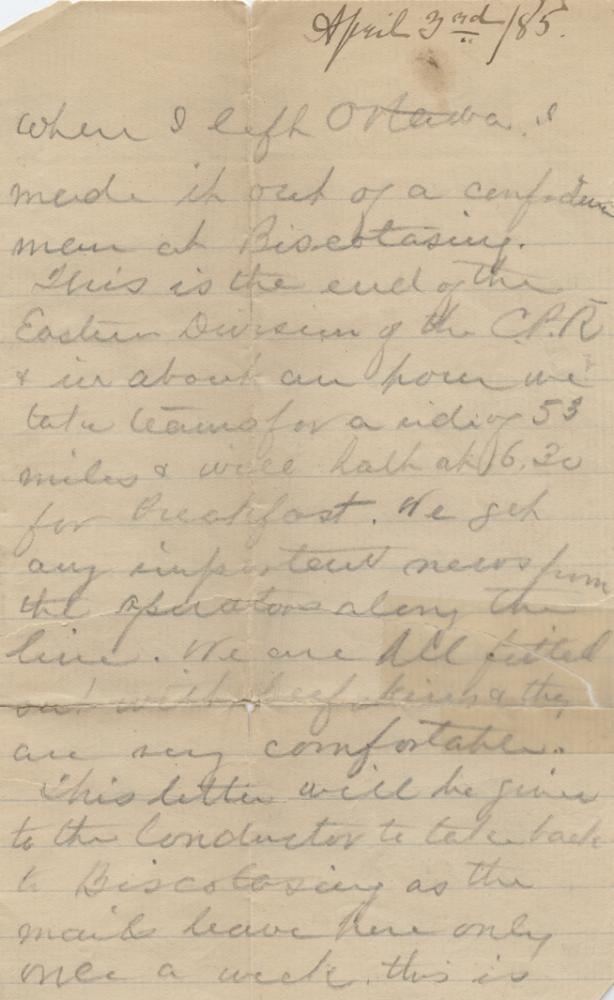 April 3rd/85.
When I left Ottawa I
made it out of a confidence
man at Biscotasing.
This is the end of the
Eastern Division of the C.P.R
& in about an hour we
take teams for a ride of 53
miles & will halt at 6.30
for Breakfast. We get
any important news from
the operators along the
line. We are all fitted
out with & they
are very comfortable.
This letter will be given
to the Conductor to take back
to Biscotasing as the
mails leave here only
once a week, this is